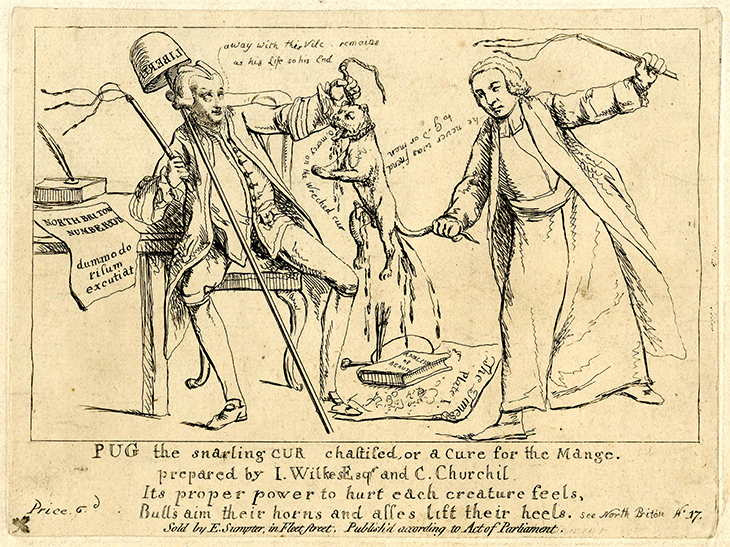 LIBERTY
away with this Vile remains
as his Life so his End
o mercy on the wretched cur
he never was friend
to G D or man
NORTH BRITON
NUMBER
dummodo
risum
excutiat
OF BEAUTY
The Times
Plate I
PUG the snarling CUR chastised, or a Cure for the Mange.
prepared by I. Wilkes Esqr and C. Churchil
Its proper power to hurt each creature feels,
Bulls aim their horns and asses lift their heels. see North Briton No 17.
Price 6d
Sold by E. Sumpter, in Fleet street. Publish'd according to Act of Parliament.